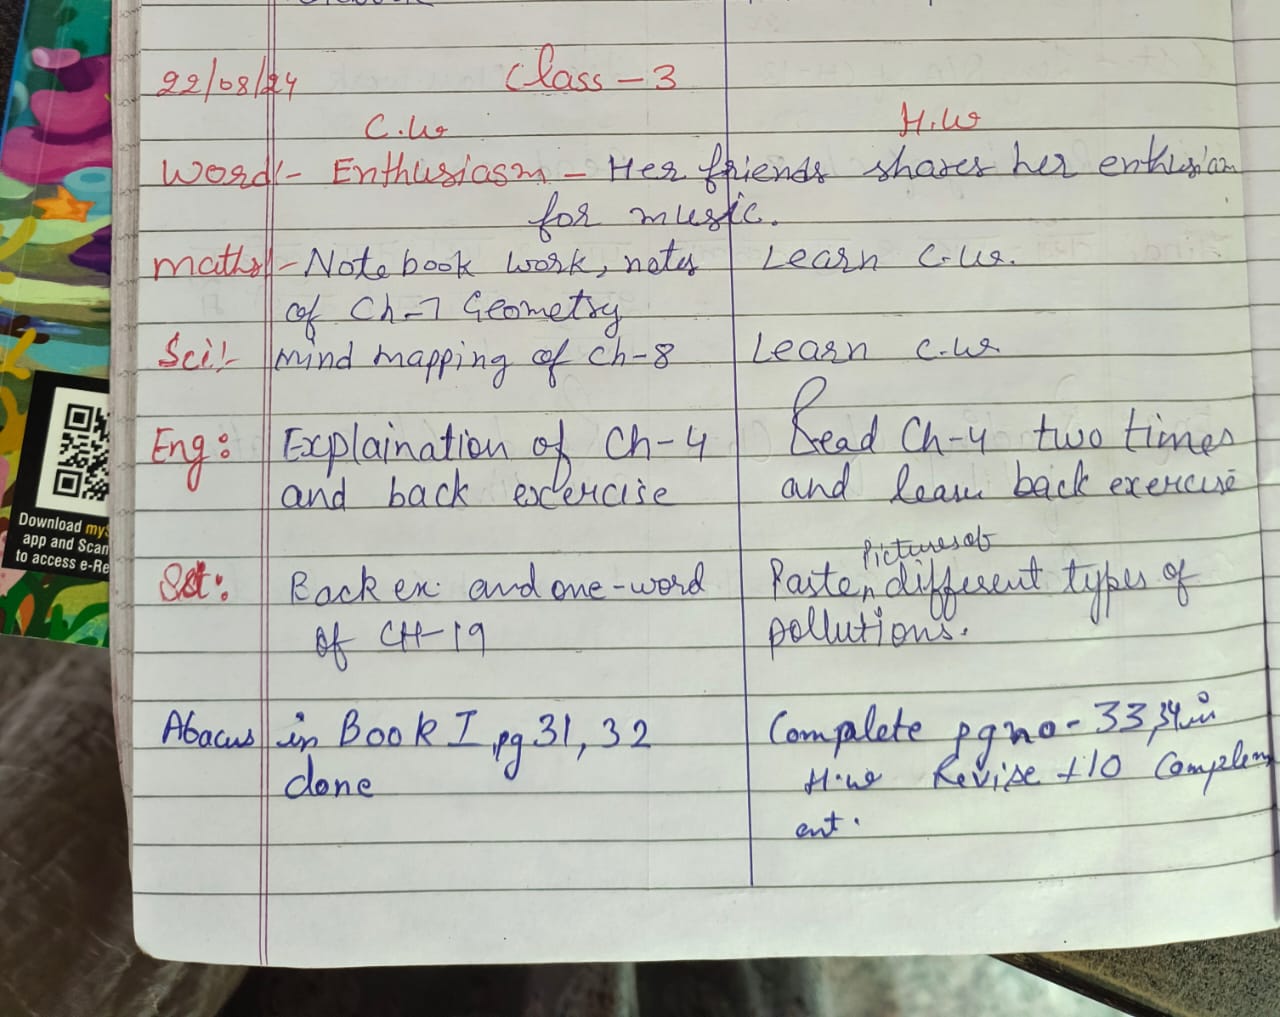 22/08/24 Class - 3
C.W H.W
Word:- Enthusiasm - Her friends shares her enthusiam
for music.
Maths:- Notebook work, notes Learn C.W.
of Ch-7 Geometry
Sci:- Mind mapping of Ch-8 Learn C.W
Eng: Explaination of Ch-4 Read Ch-4 two times
and back excercise and learn back exercise
Pictures of
Sst: Back ex. and one-word Paste ^ different types of
of CH-19 pollutions.
Abacus in Book I, pg 31, 32 Complete pg no- 33, 34 in
done H.W Revise +10 Complem
ent.
Download myS
app and Scan
to access e-Re